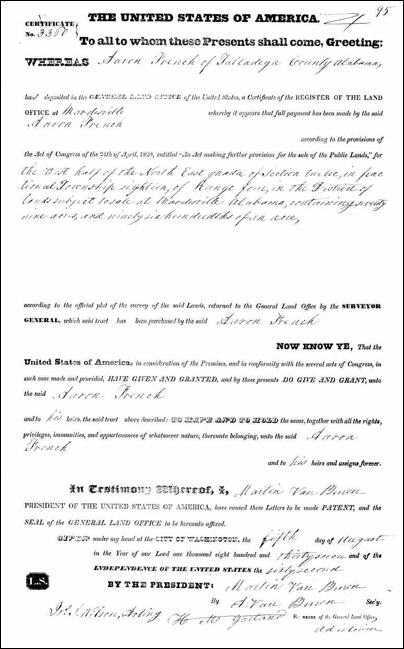 95
THE UNITED STATES OF AMERICA.
CERTIFICATE
No. 3360
To all to whom these Presents shall come, Greeting:
WHEREAS Aaron French of Talladega County Alabama,
ha deposited in the GENERAL LAND OFFICE of the United States, a Certificate of the REGISTER OF THE LAND
OFFICE at Mardisville whereby it appears that full payment has been made by the said
Aaron French
according to the provisions of
the Act of Congress of the 24th of April, 1820, entitled "An Act making further provision for the sale of the Public Lands," for
the West half of the North East quarter of Section twelve, in frac
tional Township eighteen, of Range four, in the District of
lands subject to sale at Mardisville Alabama, containing seventy
nine acres, and ninety six hundredths of an acre,
according to the official plat of the survey of the said Lands, returned to the General Land Office by the SURVEYOR
GENERAL, which said tract has been purchased by the said Aaron French
NOW KNOW YE, That the
United States of America, in consideration of the Premises, and in conformity with the several acts of Congress, in
such case made and provided, HAVE GIVEN AND GRANTED, and by these presents DO GIVE AND GRANT, unto
the said Aaron French
and to his heirs, the said tract above described: TO HAVE AND TO HOLD the same, together with all the rights,
privileges, immunities, and appurtenances of whatsoever nature, thereunto belonging, unto the said Aaron
French
and to his heirs and assigns forever.
In Testimony Whereof, I, Martin Van Buren
PRESIDENT OF THE UNITED STATES OF AMERICA, have caused these Letters to be made PATENT, and the
SEAL of the GENERAL LAND OFFICE to be hereunto affixed.
GIVEN under my hand at the CITY OF WASHINGTON, the fifth day of August
in the Year of our Lord one thousand eight hundred and thirty seven and of the
INDEPENDENCE OF THE UNITED STATES the sixty second
L.S.
BY THE PRESIDENT: Martin Van Buren
By A Van Buren Sec'y.
Jno. S. Wilson, Acting RECORDER of the General Land Office,
ad interim